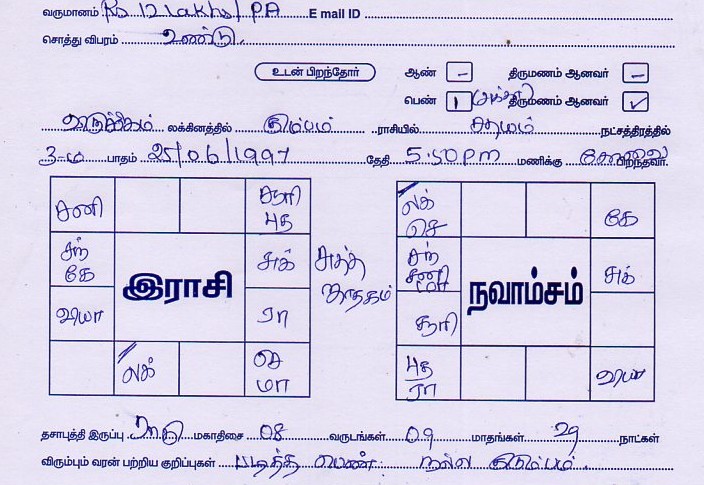 வருமானம் Rs 12 lakhs/PA E mail ID
சொத்து விபரம் உண்டு
உடன் பிறந்தோர் ஆண் – திருமணம் ஆனவர் –
பெண் 1 (அக்கா) திருமணம் ஆனவர் ✓
லக்கினத்தில் கும்பம் ராசியில் சதயம் நட்சத்திரத்தில்
3-ம் பாதம் 25/06/1997 தேதி 5:50 PM மணிக்கு பிறந்தவர்.
சனி சூரி புத லக் செ கே
சந் கே இராசி சுக் சுத்த ஜாதகம் சந் சனி நவாம்சம் சுக்
வியா ரா சூரி
லக் செ மா புத ரா வியா
தசாபுத்தி இருப்பு ராகு மகாதிசை 08 வருடங்கள் 09 மாதங்கள் 29 நாட்கள்
விரும்பும் வரன் பற்றிய குறிப்புகள் படித்த பெண் நல்ல குடும்பம்.